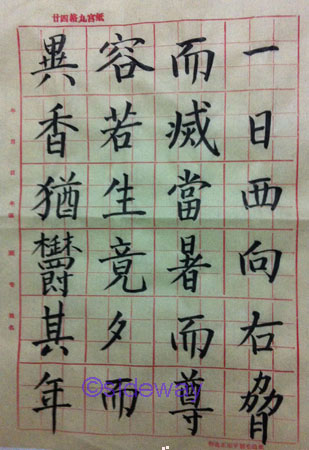 廿四格九宮紙
一日西向右脅
而滅當暑而尊
容若生竟夕而
異香猶鬱其年
©sideway